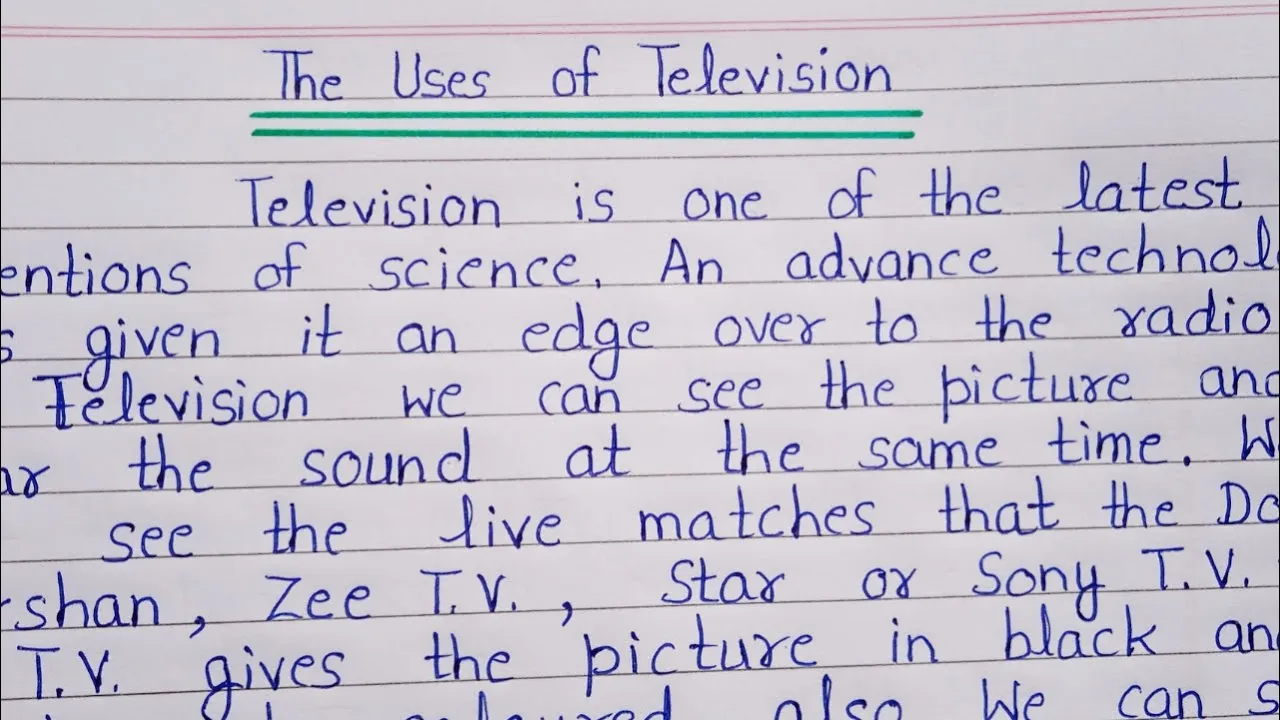 The Uses of Television
Television is one of the latest
entions of science. An advance technol
s given it an edge over to the radio
Television we can see the picture and
ar the sound at the same time. W
see the live matches that the Do
shan, Zee T.V., Star or Sony T.V.
T.V. gives the picture in black an
coloured also We can s